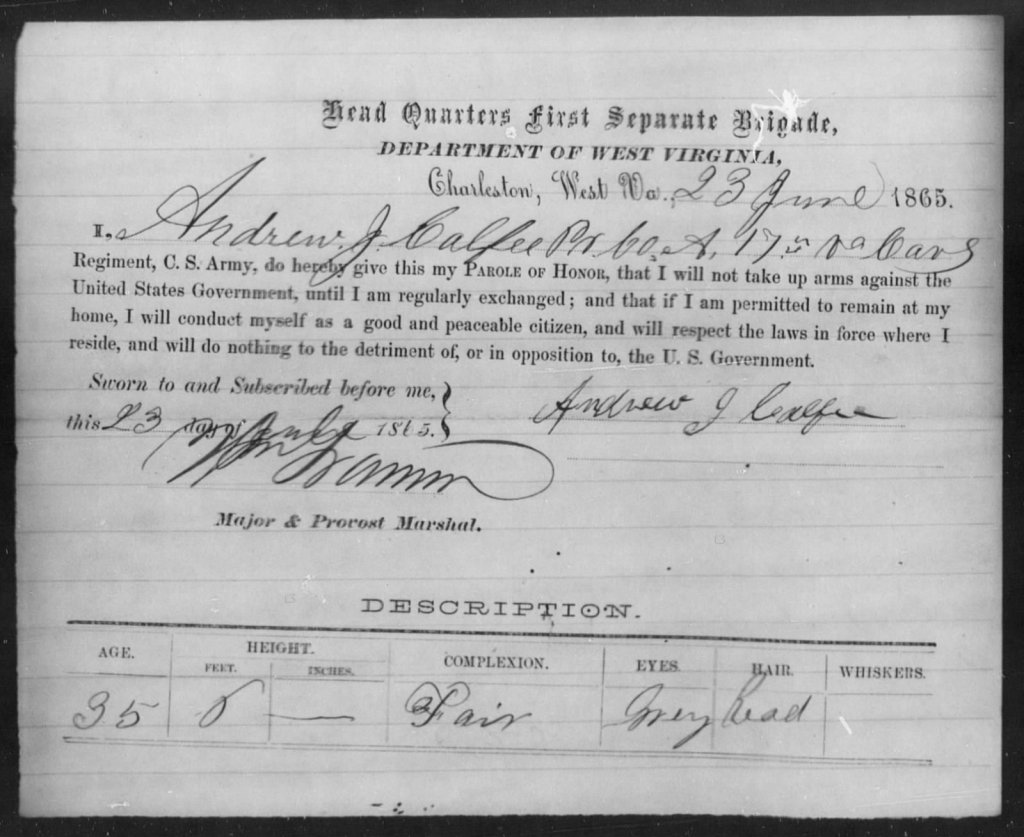 Head Quarters First Separate Brigade,
DEPARTMENT OF WEST VIRGINIA,
Charleston, West Va., 23 June 1865.
I, Andrew J Calfee Pr. Co. A. 17 Va Cav
Regiment, C. S. Army, do hereby give this my PAROLE OF HONOR, that I will not take up arms against the
United States Government, until I am regularly exchanged; and that if I am permitted to remain at my
home, I will conduct myself as a good and peaceable citizen, and will respect the laws in force where I
reside, and will do nothing to the detriment of, or in opposition to, the U. S. Government.
Sworn to and Subscribed before me,
this 23 day of 1865.
Andrew J Calfee
Major & Provost Marshal.
DESCRIPTION.
AGE. HEIGHT. COMPLEXION. EYES. HAIR. WHISKERS.
FEET. INCHES.
35 Fair Grey Read